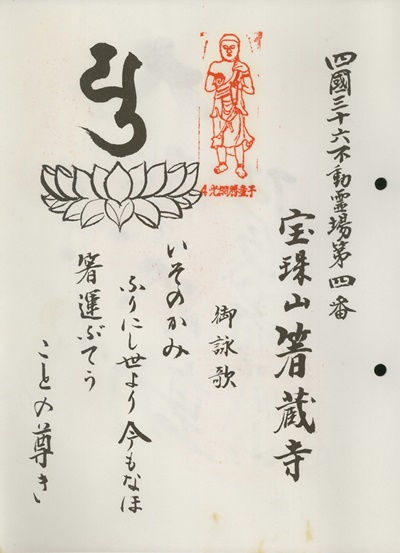 四國三十六不動霊場第四番
宝珠山箸蔵寺
御詠歌
いそのかみ
ふりにし世より今もなほ
箸運ぶてう
ことの尊き